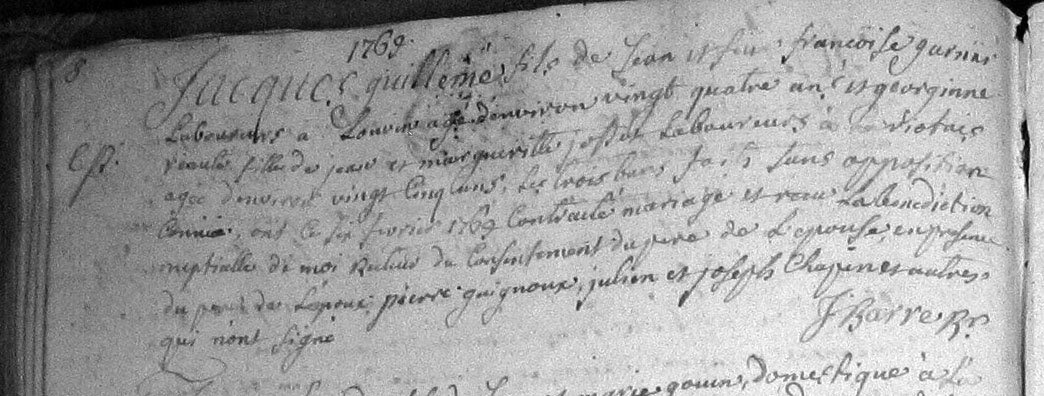 8
1769
Jacques guillemé fils de Jean et feu francoise
Laboureurs a Louvin agé d'environ vingt quatre ans et georginne
fille de jean et margueritte josset Laboureurs à
agée d'environ vingt cinq ans, les trois bans faits sans opposition
ont ce six fevrier 1769 contracté mariage et recu la benediction
nuptialle de moi du consentement du pere de L'epouse, en presence
du pere de L'epoux, pierre guignoux, julien et joseph Chapin et autres
qui n'ont signé
J Barre Rr.
marie gouin, domestique à La